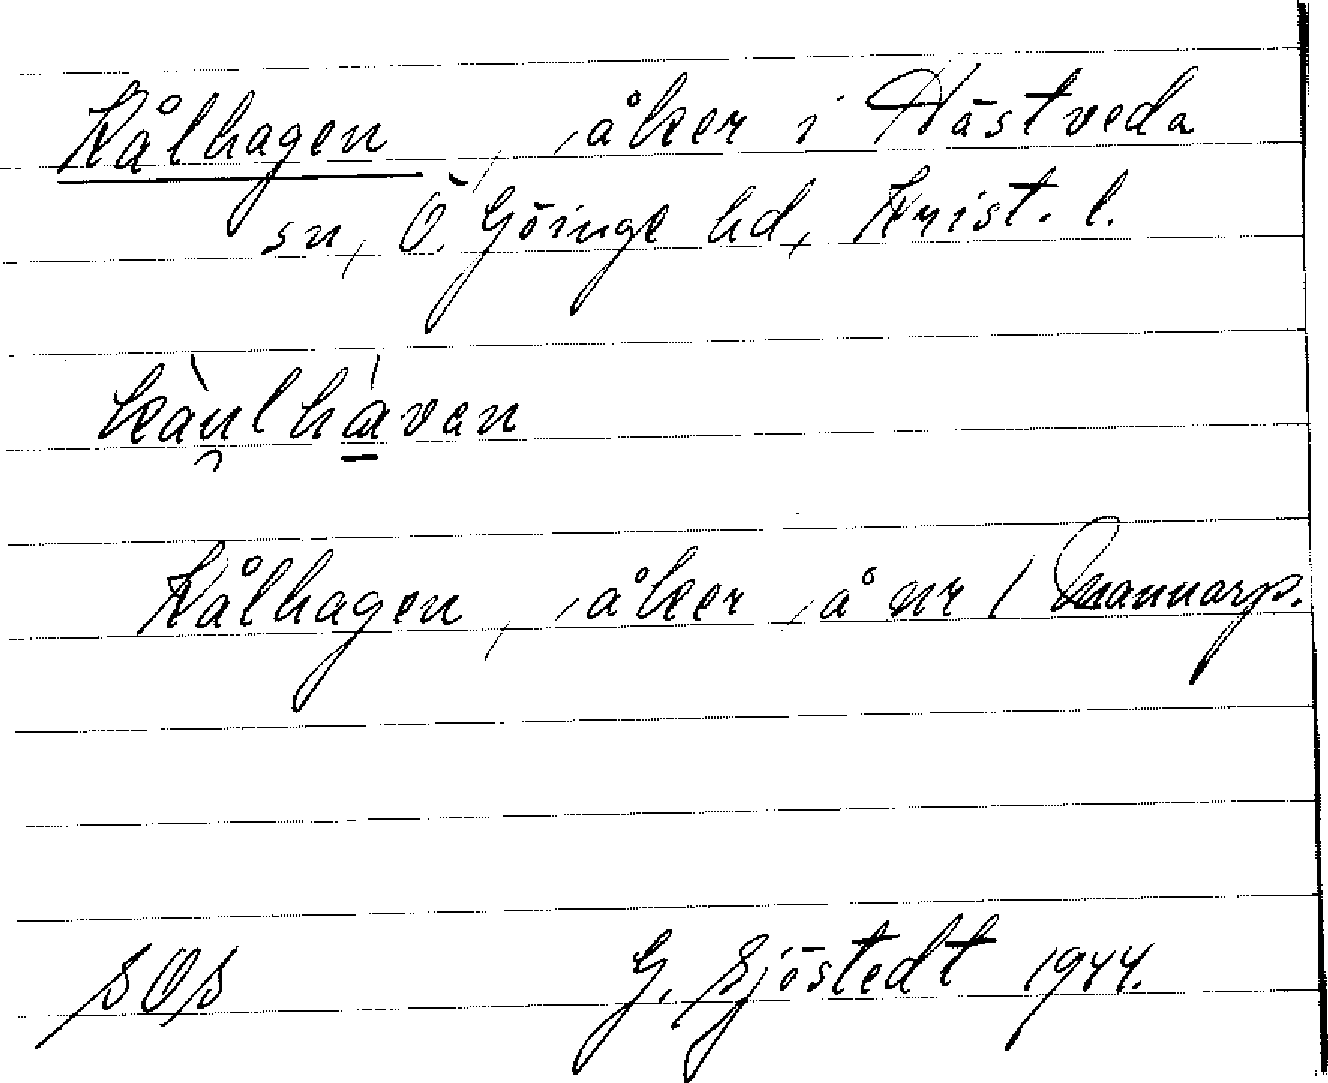 Kålhagen, åker i Hästveda
sn, Ö. Göinge hd, Krist. l.
kàu̯lhá̱van
Kålhagen, åker å nr 1 Mannarp.
SOS G. Sjöstedt 1944.